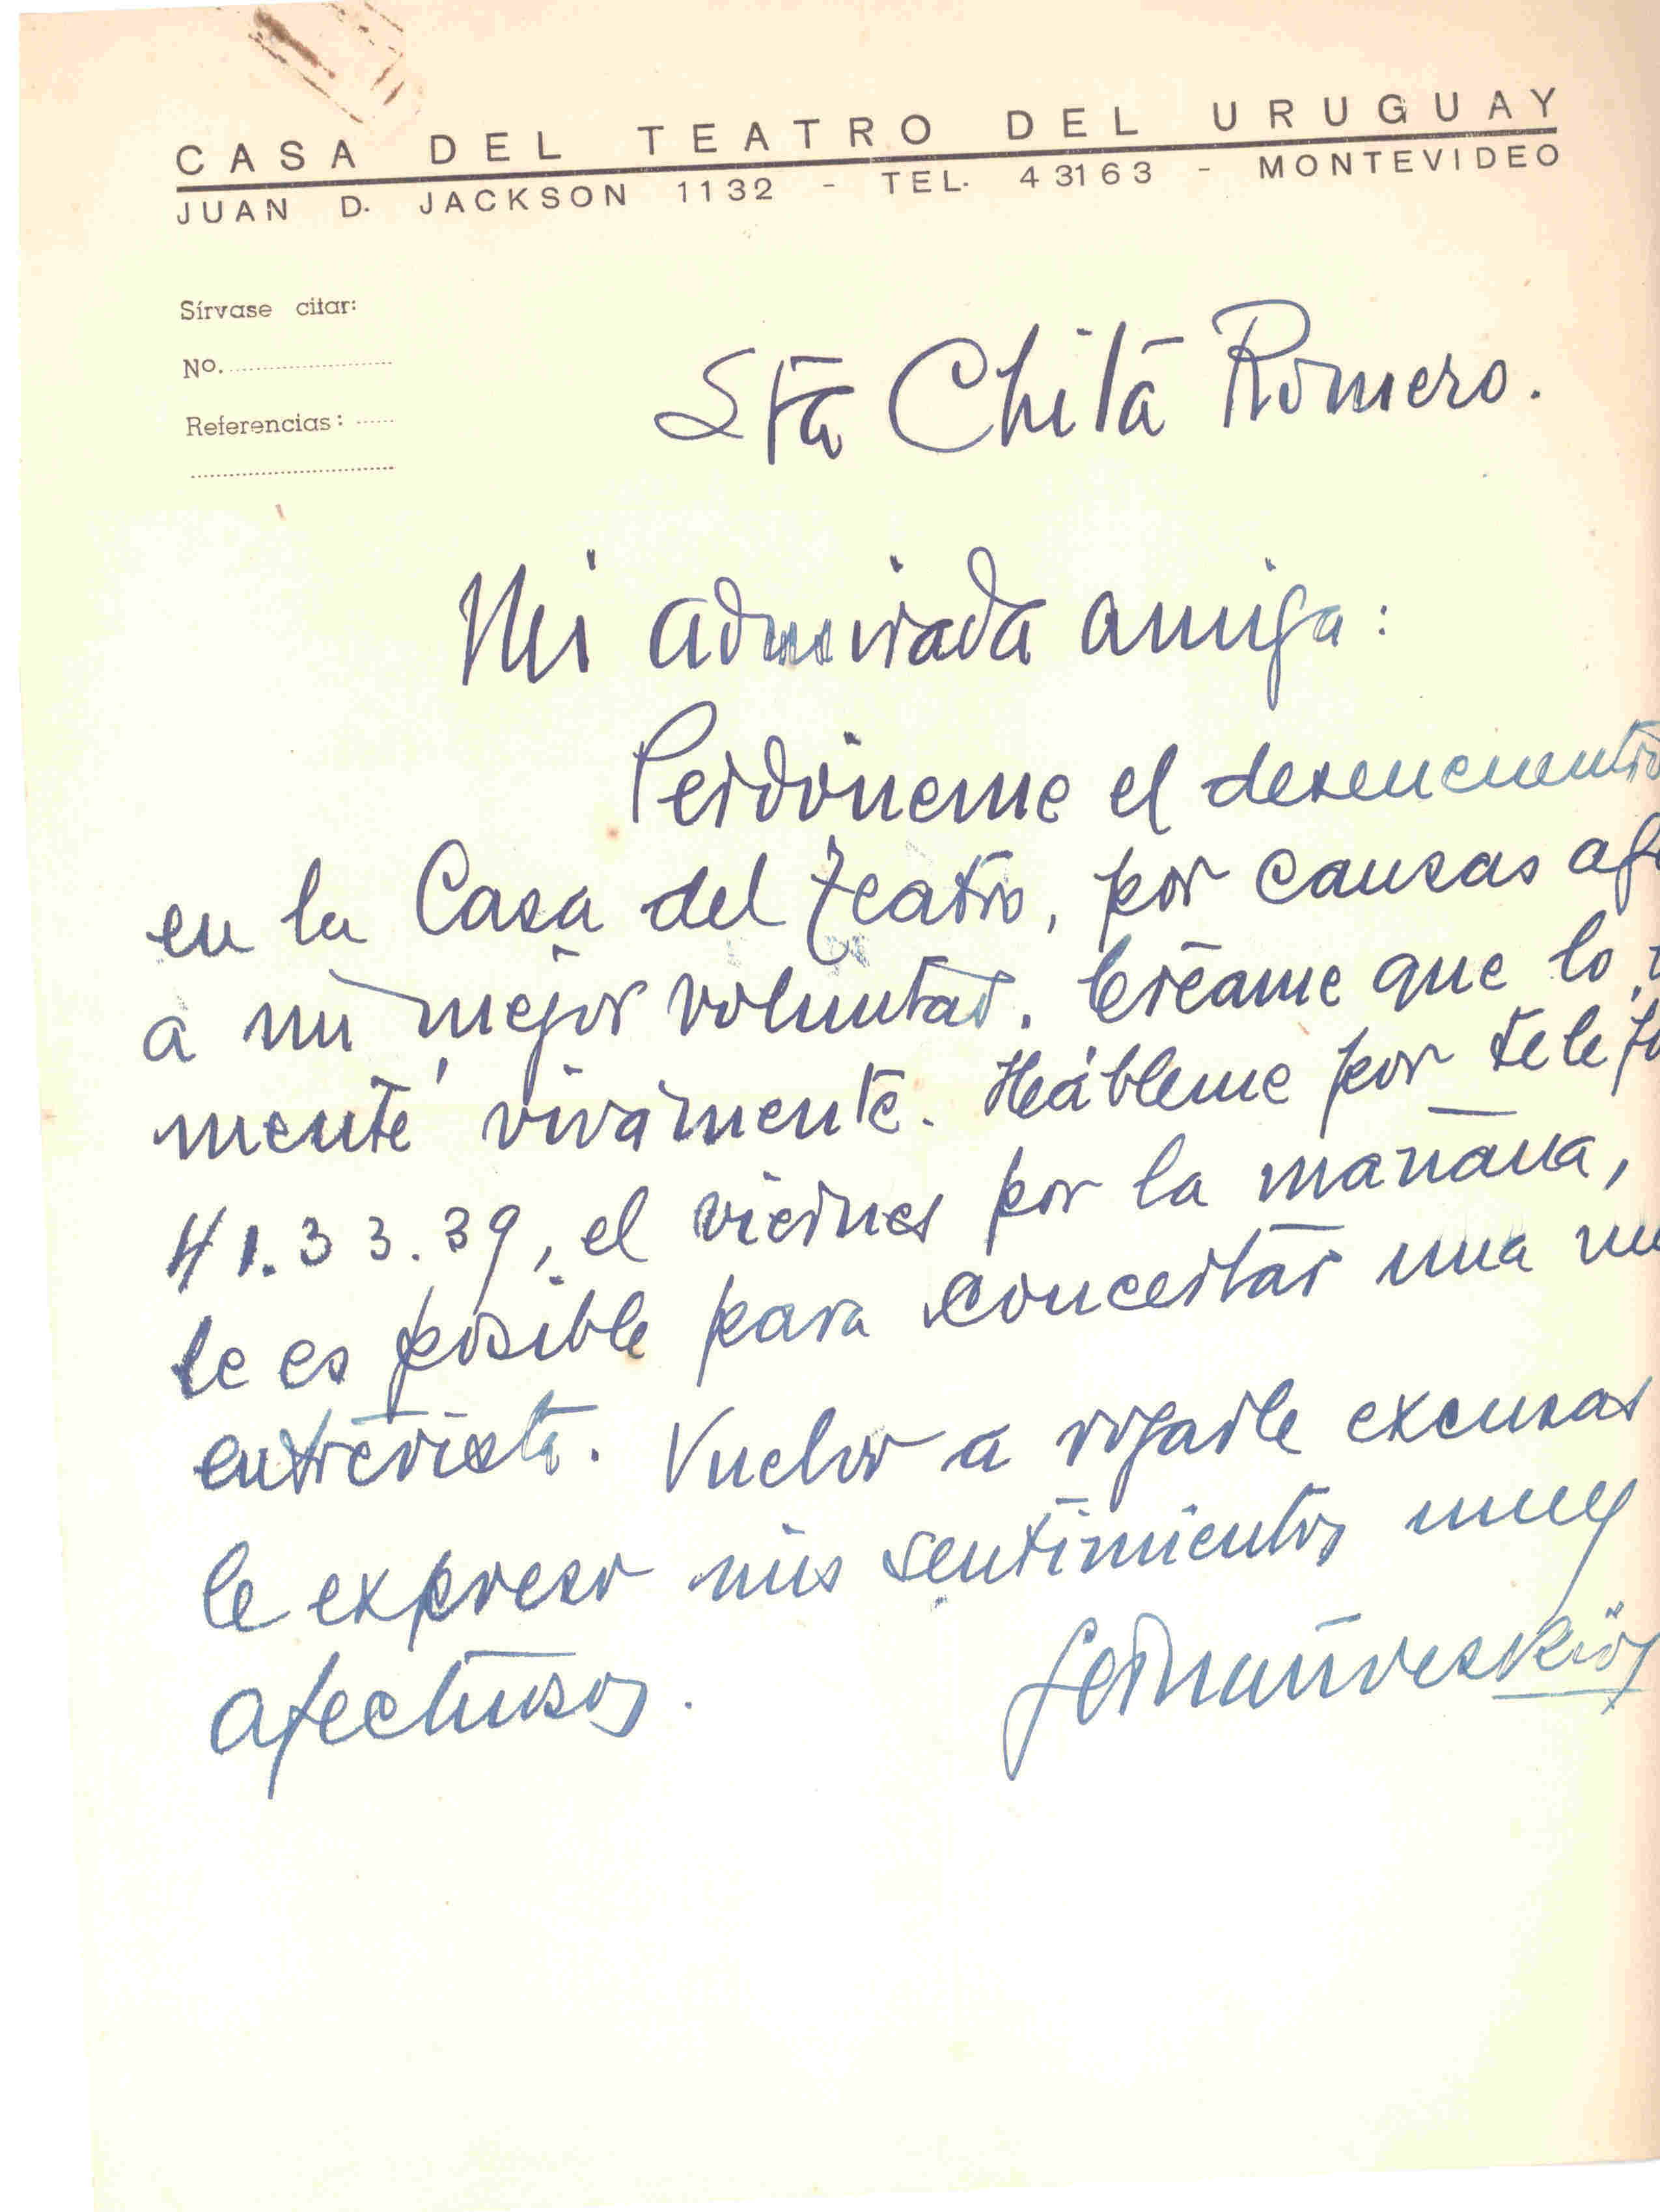 CASA DEL TEATRO DEL URUGUAY
JUAN D. JACKSON 1132 - TEL. 43163 - MONTEVIDEO
Sírvase citar:
No.
Referencias:
Sta Chita Romero.
Mi admirada amiga:
Perdóneme el desencuentro
en la Casa del Teatro, por causas
a mi mejor voluntad. Créame que lo
menté vivamente. Hábleme por
41.33.39, el viernes por la mañana,
le es posible para concertar una
entrevista. Vuelvo a rogarle excusas
le expreso mis sentimientos muy
afectuosos. Fernández Ríos